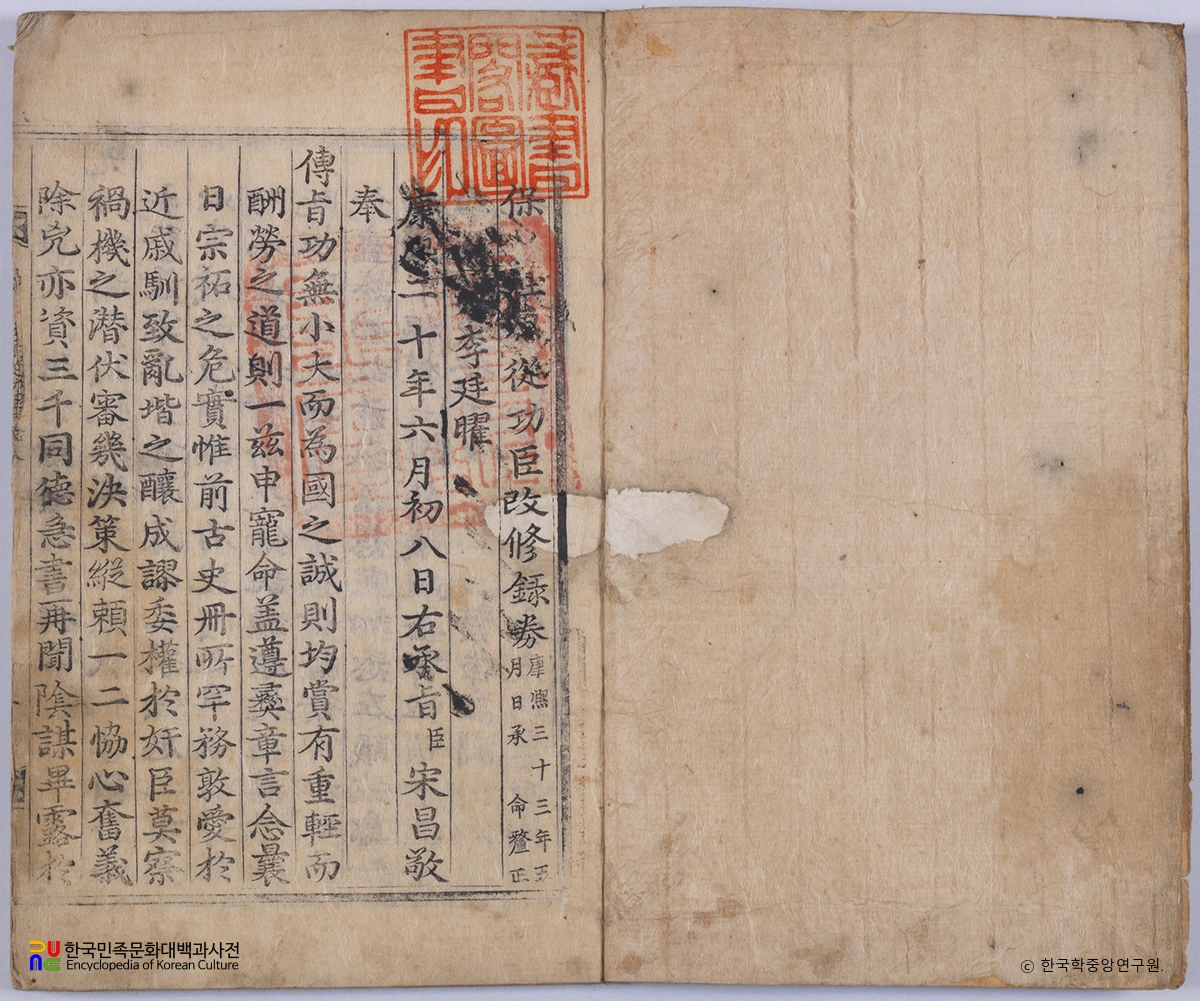 保社原從功臣改修錄券 康熙三十三年五月日承 命釐正
李廷曜
康熙二十年六月初八日右承旨臣宋昌敬
奉
傳旨功無小大而為國之誠則均賞有重輕而
酬勞之道則一玆申寵命盖遵彛章言念曩
日宗祏之危實惟前古史冊所罕務敦愛於
近戚馴致亂堦之釀成謬委權於奸臣莫察
禍機之潜伏審幾決策縱頼一二恊心奮義
除兇亦資三千同德急書再聞陰謀畢露於
奎章閣圖書印
한국민족문화대백과사전
Encyclopedia of Korean Culture
ⓒ 한국학중앙연구원.